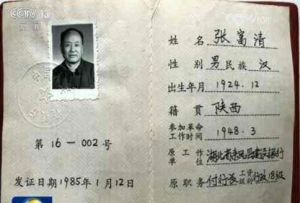 CCTV
姓名 张富清
性别 男 民族 汉
出生年月 1924.12
籍贯 陕西
参加革命时间 1948.3
原工作单位 湖北省来凤县建设银行
原职务 付行长 行政18级
第16-002号
发证日期 1985年1月12日